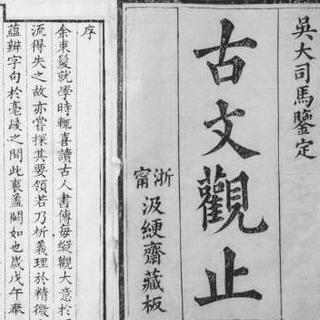 吳大司馬鑒定
古文觀止
浙甯
汲綆齋藏板
序
余束髮就學時輒喜讀古人書傳每縱觀大意於
流得失之故亦嘗探其要領若乃析義理於精微
蘊辨字句於毫髮之間此衷蓋闕如也歲戊午奉